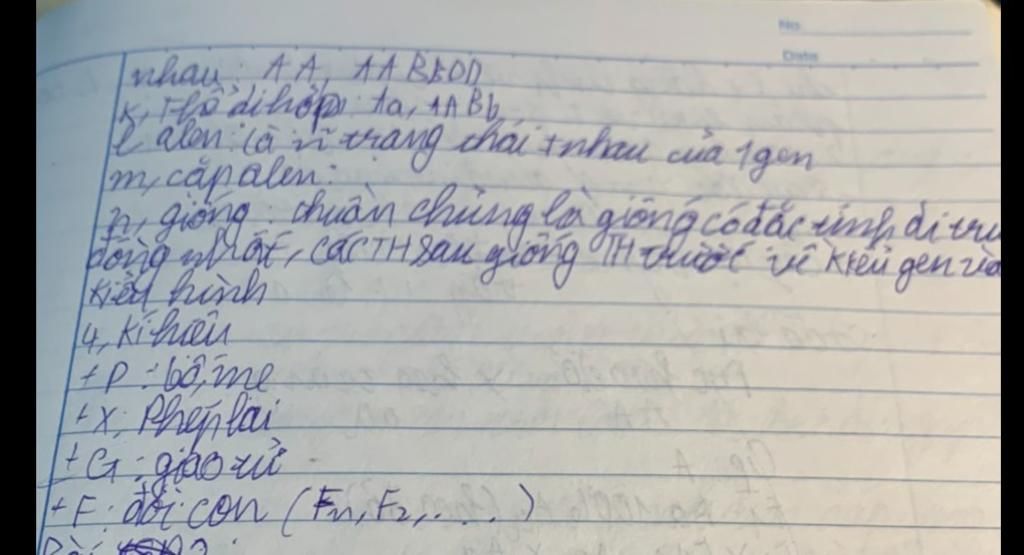 No.
Date
nhau: AA, AABBDD
k, Thể dị hợp: Aa, AABb
l alen: là ≠ trạng thái ≠ nhau của 1 gen
m, cặp alen:
n, giống: chuẩn chủng là giống có đặc tính di tru
đồng nhất, các TH sau giống TH trước về kiểu gen và
kiểu hình
4, Kí hiệu
+ P: bố, mẹ
+ X: Phép lai
+ G: giao tử
+ F: đời con (Fn, F2, ....)
Bài